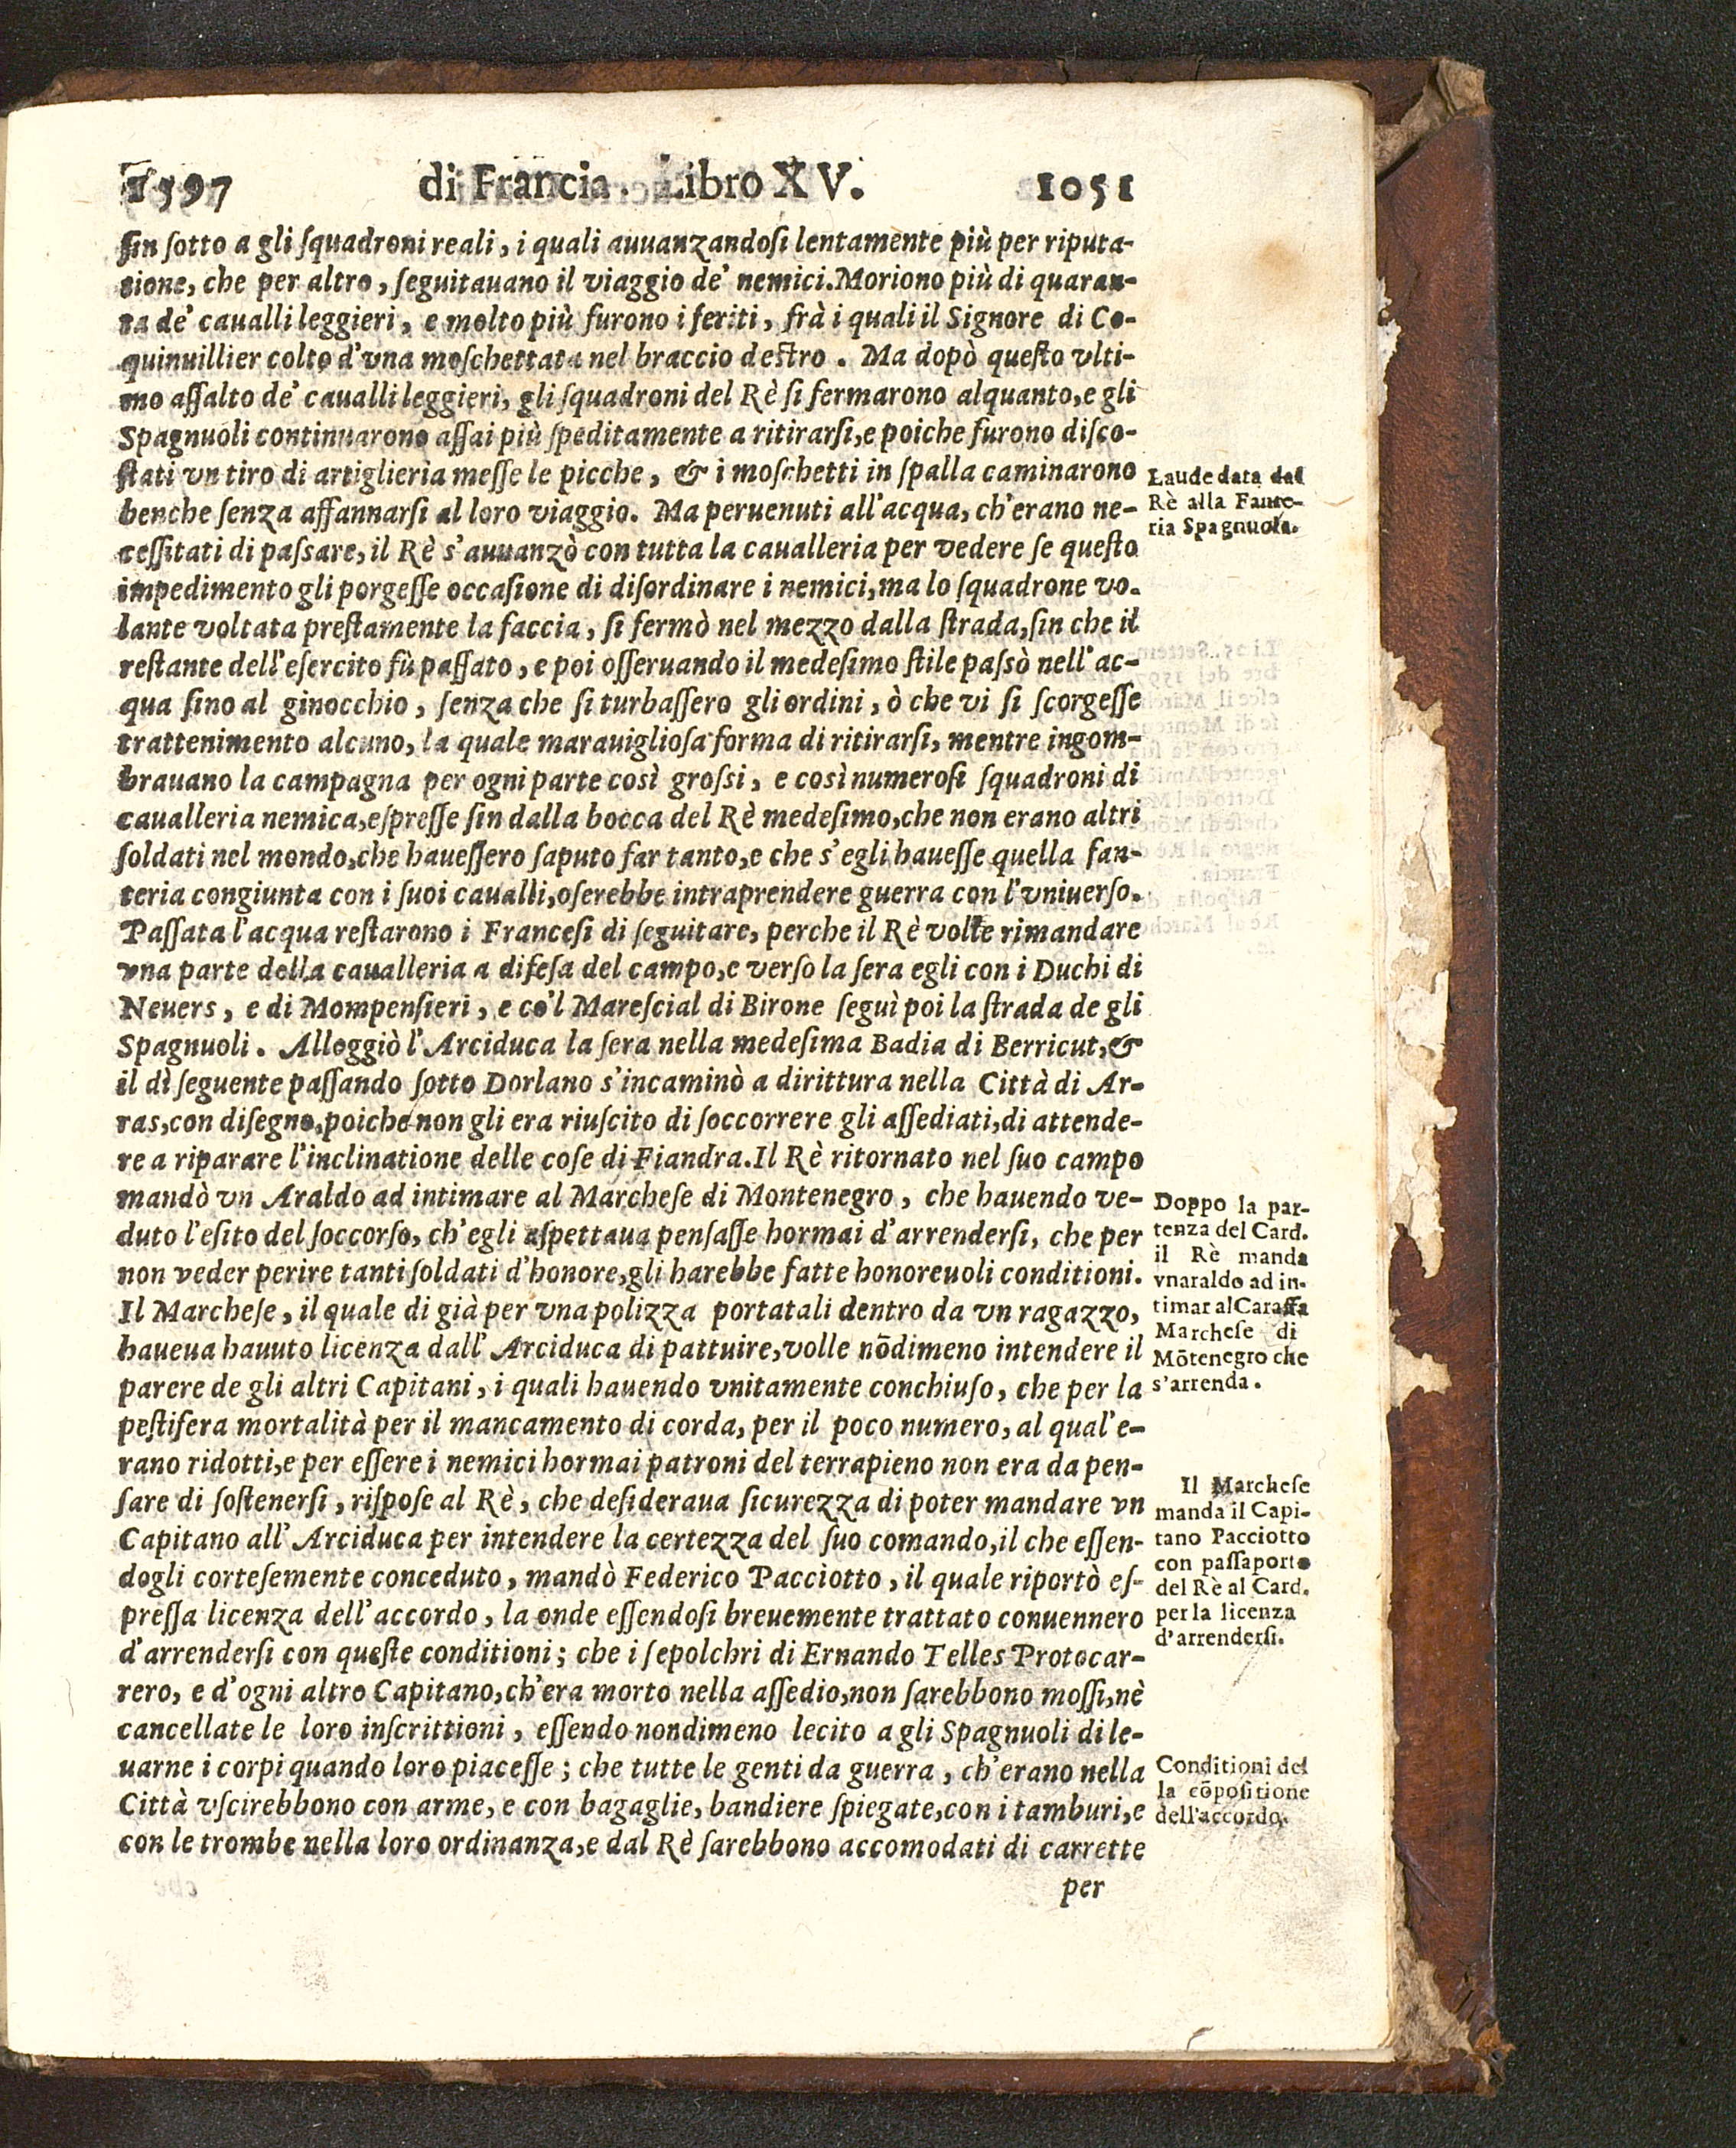 1597 di Francia. Libro XV. 1051
ſin ſotto a gli ſquadroni reali, i quali auuanzandoſi lentamente più per riputa-
tione, che per altro, ſeguitauano il viaggio de' nemici. Moriono più di quaran-
ta de' caualli leggieri, e molto più furono i feriti, frà i quali il Signore di Co-
quinuillier colto d'vna moſchettata nel braccio deſtro. Ma dopò queſto vlti-
mo aſſalto de' caualli leggieri, gli ſquadroni del Rè ſi fermarono alquanto, e gli
Spagnuoli continuarono aſſai più ſpeditamente a ritirarſi, e poiche furono diſco-
ſtati vn tiro di artiglieria meſſe le picche, & i moſchetti in ſpalla caminarono
benche ſenza affannarſi al loro viaggio. Ma peruenuti all'acqua, ch'erano ne-
ceſſitati di paſsare, il Rè s'auuanzò con tutta la caualleria per vedere ſe queſto
impedimento gli porgeſſe occaſione di diſordinare i nemici, ma lo ſquadrone vo-
lante voltata preſtamente la faccia, ſi fermò nel mezzo dalla ſtrada, ſin che il
reſtante dell'eſercito fù paſſato, e poi oſſeruando il medeſimo ſtile paſsò nell'ac-
qua ſino al ginocchio, ſenza che ſi turbaſſero gli ordini, ò che vi ſi ſcorgeſſe
trattenimento alcuno, la quale marauiglioſa forma di ritirarſi, mentre ingom-
brauano la campagna per ogni parte così groſsi, e così numeroſi ſquadroni di
caualleria nemica, eſpreſſe ſin dalla bocca del Rè medeſimo, che non erano altri
ſoldati nel mondo, che haueſſero ſaputo far tanto, e che s'egli haueſſe quella fan-
teria congiunta con i ſuoi caualli, oſerebbe intraprendere guerra con l'vniuerſo.
Paſſata l'acqua reſtarono i Franceſi di ſeguitare, perche il Rè volle rimandare
vna parte della caualleria a difeſa del campo, e verſo la ſera egli con i Duchi di
Neuers, e di Mompenſieri, e co'l Mareſcial di Birone ſeguì poi la ſtrada de gli
Spagnuoli. Alloggiò l'Arciduca la ſera nella medeſima Badia di Berricut, &
il dì ſeguente paſſando ſotto Dorlano s'incaminò a dirittura nella Città di Ar-
ras, con diſegno, poiche non gli era riuſcito di ſoccorrere gli aſſediati, di attende-
re a riparare l'inclinatione delle coſe di Fiandra. Il Rè ritornato nel ſuo campo
mandò vn Araldo ad intimare al Marcheſe di Montenegro, che hauendo ve-
duto l'eſito del ſoccorſo, ch'egli aſpettaua penſaſſe hormai d'arrenderſi, che per
non veder perire tanti ſoldati d'honore, gli harebbe fatte honoreuoli conditioni.
Il Marcheſe, il quale di già per vna polizza portatali dentro da vn ragazzo,
haueua hauuto licenza dall'Arciduca di pattuire, volle nōdimeno intendere il
parere de gli altri Capitani, i quali hauendo vnitamente conchiuſo, che per la
peſtifera mortalità per il mancamento di corda, per il poco numero, al qual'e-
rano ridotti, e per eſſere i nemici hormai patroni del terrapieno non era da pen-
ſare di ſoſtenerſi, riſpoſe al Rè, che deſideraua ſicurezza di poter mandare vn
Capitano all'Arciduca per intendere la certezza del ſuo comando, il che eſſen-
dogli corteſemente conceduto, mandò Federico Pacciotto, il quale riportò eſ-
preſſa licenza dell'accordo, la onde eſſendoſi breuemente trattato conuennero
d'arrenderſi con queſte conditioni; che i ſepolchri di Ernando Telles Protocar-
rero, e d'ogni altro Capitano, ch'era morto nella aſſedio, non ſarebbono moſſi, nè
cancellate le loro inſcrittioni, eſſendo nondimeno lecito a gli Spagnuoli di le-
uarne i corpi quando loro piaceſſe; che tutte le genti da guerra, ch'erano nella
Città vſcirebbono con arme, e con bagaglie, bandiere ſpiegate, con i tamburi, e
con le trombe nella loro ordinanza, e dal Rè ſarebbono accomodati di carrette
per
Laude data dal
Rè alla Fante-
ria Spagnuola.
Doppo la par-
tenza del Card.
il Rè manda
vnaraldo ad in-
timar al Caraffa
Marcheſe di
Mōtenegro che
s'arrenda.
Il Marcheſe
manda il Capi-
tano Pacciotto
con paſſaporto
del Rè al Card.
per la licenza
d'arrenderſi.
Conditioni del
la cōpoſitione
dell'accordo.